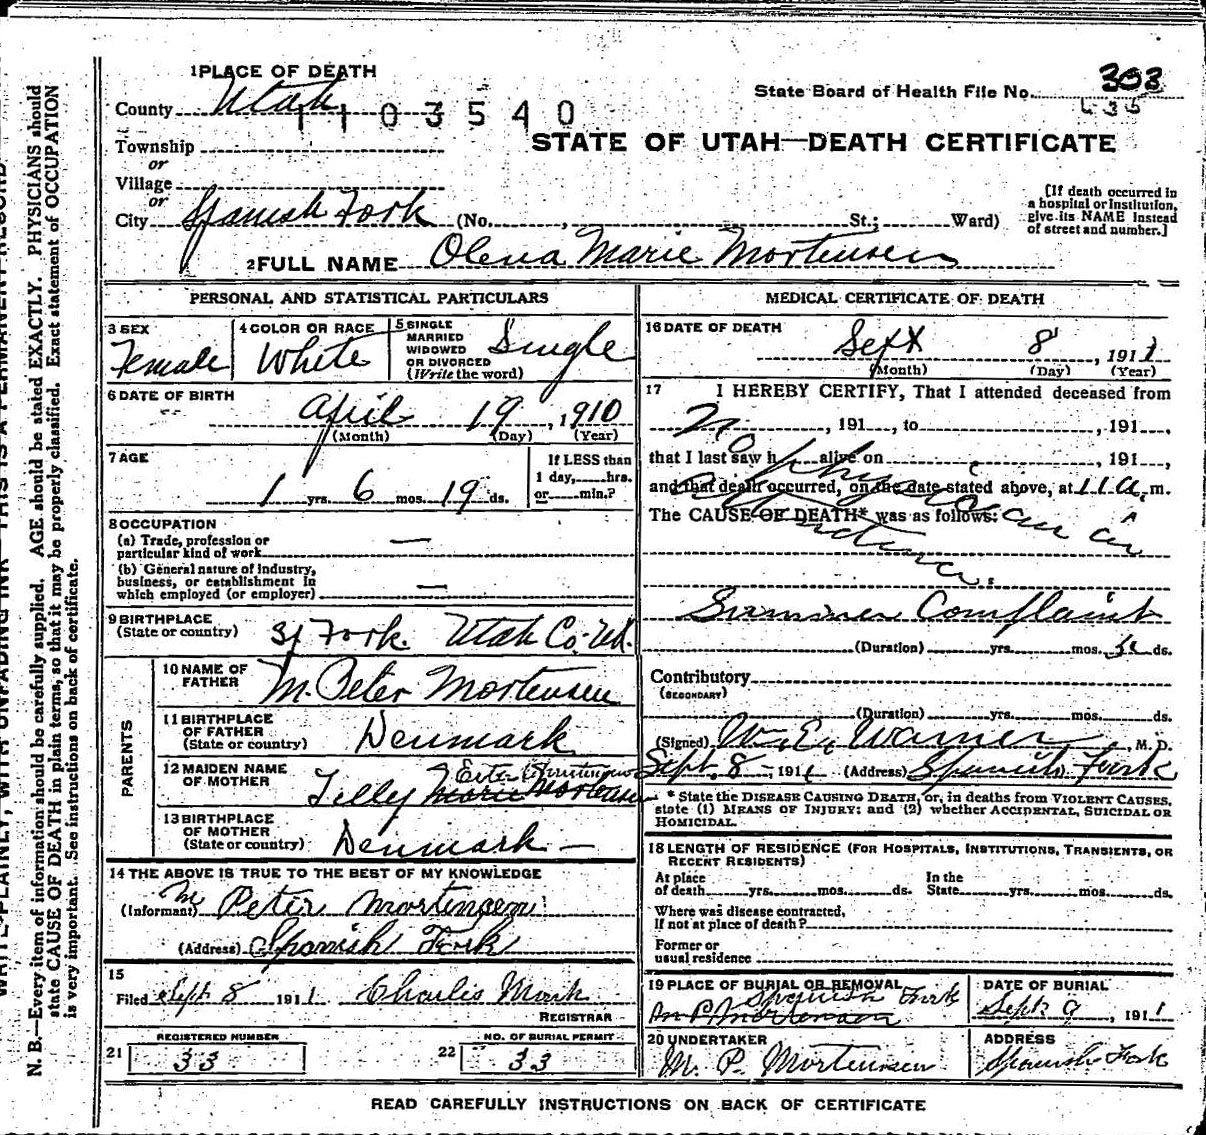 1 PLACE OF DEATH
County Utah
1103540
State Board of Health File No. 303
635
STATE OF UTAH—DEATH CERTIFICATE
Township
or
Village
or
City Spanish Fork (No. , St.; Ward)
[If death occurred in a hospital or institution, give its NAME instead of street and number.]
2 FULL NAME Olena Marie Mortensen
PERSONAL AND STATISTICAL PARTICULARS
3 SEX
Female
4 COLOR OR RACE
White
5 SINGLE
MARRIED
WIDOWED
OR DIVORCED
(Write the word)
Single
6 DATE OF BIRTH
April 19, 1910
(Month) (Day) (Year)
7 AGE
1 yrs. 6 mos. 19 ds.
If LESS than
1 day, hrs.
or min.?
8 OCCUPATION
(a) Trade, profession or
particular kind of work —
(b) General nature of industry,
business, or establishment in
which employed (or employer) —
9 BIRTHPLACE
(State or country) Sp Fork. Utah Co. Ut.
PARENTS
10 NAME OF
FATHER M. Peter Mortensen
11 BIRTHPLACE
OF FATHER
(State or country) Denmark
12 MAIDEN NAME
OF MOTHER Tilly Marie Mortensen
13 BIRTHPLACE
OF MOTHER
(State or country) Denmark —
14 THE ABOVE IS TRUE TO THE BEST OF MY KNOWLEDGE
(Informant) M Peter Mortensen
(Address) Spanish Fork
15
Filed Sept 8 1911 Charles Monk
REGISTRAR
REGISTERED NUMBER
21 33
NO. OF BURIAL PERMIT
22 33
MEDICAL CERTIFICATE OF DEATH
16 DATE OF DEATH
Sept 8, 1911
(Month) (Day) (Year)
17 I HEREBY CERTIFY, That I attended deceased from
, 191 , to , 191 ,
that I last saw h alive on , 191 ,
and that death occurred, on the date stated above, at 11 a. m.
The CAUSE OF DEATH* was as follows:
No physician in attendance.
Summer Complaint
(Duration) yrs. mos. ds.
Contributory
(SECONDARY)
(Duration) yrs. mos. ds.
(Signed) W. E. Warner, M. D.
Sept. 8 1911 (Address) Spanish Fork
* State the DISEASE CAUSING DEATH, or, in deaths from VIOLENT CAUSES,
state (1) MEANS OF INJURY; and (2) whether ACCIDENTAL, SUICIDAL OR
HOMICIDAL.
18 LENGTH OF RESIDENCE (FOR HOSPITALS, INSTITUTIONS, TRANSIENTS, OR
RECENT RESIDENTS)
At place
of death yrs. mos. ds.
In the
State yrs. mos. ds.
Where was disease contracted,
if not at place of death?
Former or
usual residence
19 PLACE OF BURIAL OR REMOVAL
Spanish Fork
M P Mortensen
DATE OF BURIAL
Sept 9, 1911
20 UNDERTAKER
M. P. Mortensen
ADDRESS
Spanish Fork
READ CAREFULLY INSTRUCTIONS ON BACK OF CERTIFICATE
WRITE PLAINLY, WITH UNFADING INK—THIS IS A PERMANENT RECORD
N. B.—Every item of information should be carefully supplied. AGE should be stated EXACTLY. PHYSICIANS should
state CAUSE OF DEATH in plain terms, so that it may be properly classified. Exact statement of OCCUPATION
is very important. See instructions on back of certificate.